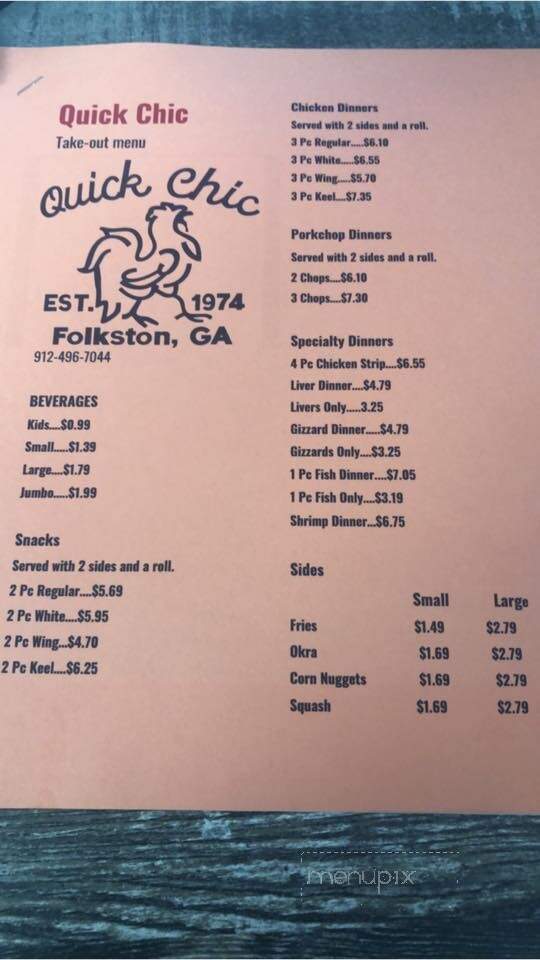 Quick Chic
Take-out menu
Quick Chic
EST. 1974
Folkston, GA
912-496-7044
BEVERAGES
Kids....$0.99
Small.....$1.39
Large....$1.79
Jumbo.....$1.99
Snacks
Served with 2 sides and a roll.
2 Pc Regular....$5.69
2 Pc White....$5.95
2 Pc Wing...$4.70
2 Pc Keel....$6.25
Chicken Dinners
Served with 2 sides and a roll.
3 Pc Regular.....$6.10
3 Pc White.....$6.55
3 Pc Wing.....$5.70
3 Pc Keel....$7.35
Porkchop Dinners
Served with 2 sides and a roll.
2 Chops....$6.10
3 Chops....$7.30
Specialty Dinners
4 Pc Chicken Strip....$6.55
Liver Dinner....$4.79
Livers Only.....3.25
Gizzard Dinner.....$4.79
Gizzards Only....$3.25
1 Pc Fish Dinner....$7.05
1 Pc Fish Only....$3.19
Shrimp Dinner...$6.75
Sides
Small Large
Fries $1.49 $2.79
Okra $1.69 $2.79
Corn Nuggets $1.69 $2.79
Squash $1.69 $2.79
menupix